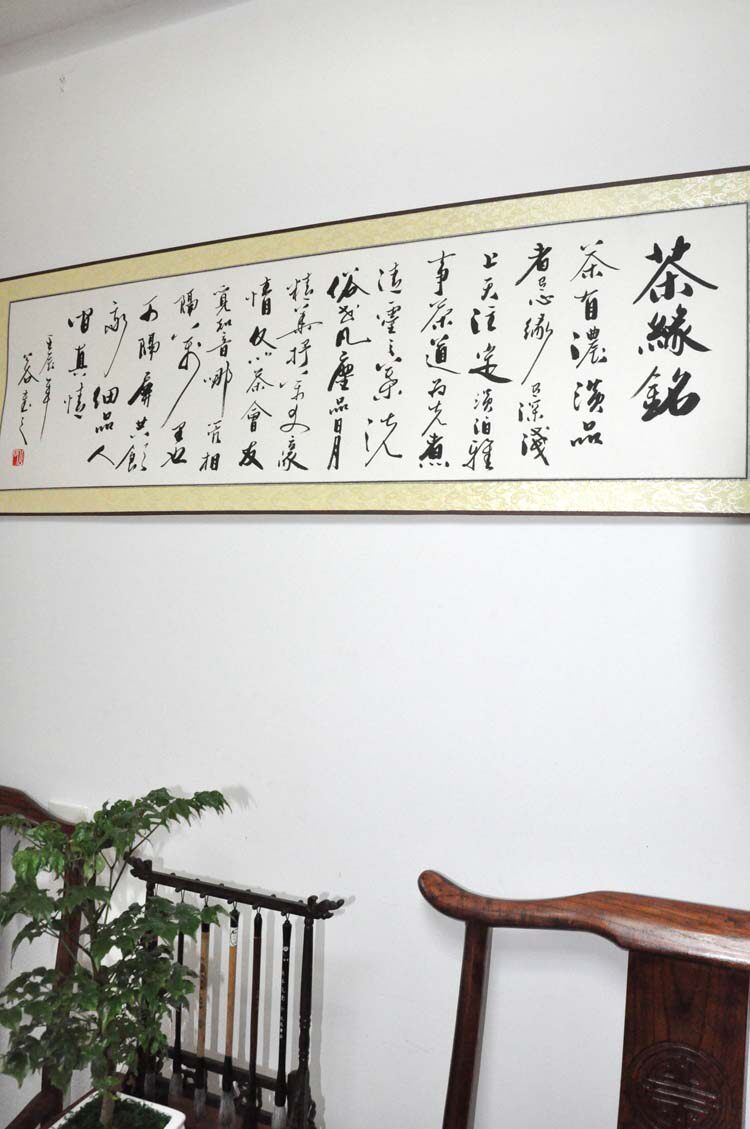 茶緣銘
茶有濃淡品
者缘深淺
上天注定淡泊雅
事茶道為先煮
清靈之氣洗
俗世凡塵品日月
精華抒萬丈豪
情以茶會友
覓知音哪管相
隔萬里也
可隔屏共飲
細品人
間真情
壬辰年